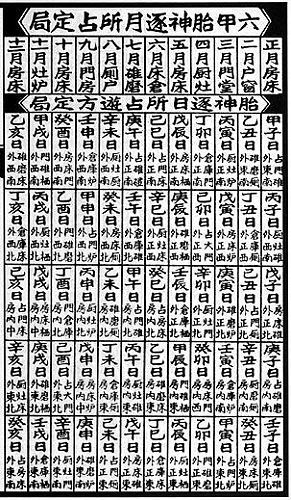 六甲胎神逐月所占定局
正月房床
二月户窗
三月門堂
四月厨灶
五月房床
六月床倉
七月碓磨
八月厠户
九月門房
十月房床
十一月灶炉
十二月房床
胎神逐日所占遊方定局
甲子日占門碓外東南
乙丑日碓磨厠外東南
丙寅日厨灶炉外正南
丁卯日倉庫門外正南
戊辰日房床栖外正南
己巳日占門床外正南
庚午日占碓磨外正南
辛未日厨灶厠外西南
壬申日倉庫炉外西南
癸酉日房床門外西南
甲戌日門碓栖外西南
乙亥日碓磨床外西南
丙子日厨灶碓外西南
丁丑日倉庫厠外正西
戊寅日房床炉外正西
己卯日占大門外正西
庚辰日碓磨栖外正西
辛巳日厨灶床外正西
壬午日倉庫碓外西北
癸未日房床厠外西北
甲申日占門炉外西北
乙酉日碓磨門外西北
丙戌日厨灶栖外西北
丁亥日倉庫床外西北
戊子日房床碓外正北
己丑日占門厠外正北
庚寅日碓磨炉外正北
辛卯日厨灶門外正北
壬辰日倉庫栖外正北
癸巳日占房床房内北
甲午日占門碓房内北
乙未日碓磨厠房内北
丙申日厨灶炉房内北
丁酉日倉庫門房内北
戊戌日房床栖房内中
己亥日占門床房内中
庚子日占碓磨房内南
辛丑日厨灶厠房内南
壬寅日倉庫炉房内南
癸卯日房床門房内南
甲辰日門雞栖房内東
乙巳日碓磨床房内東
丙午日厨灶碓房内東
丁未日倉庫厠房内東
戊申日房床炉房内中
己酉日占大門外東北
庚戌日碓磨栖外東北
辛亥日厨灶床外東北
壬子日倉庫碓外東北
癸丑日房床厠外東北
甲寅日占門炉外東北
乙卯日碓磨門外正東
丙辰日厨灶栖外正東
丁巳日倉庫床外正東
戊午日房床碓外正東
己未日占門厠外正東
庚申日碓磨炉外東南
辛酉日厨灶門外東南
壬戌日倉庫栖外東南
癸亥日占房床外東南